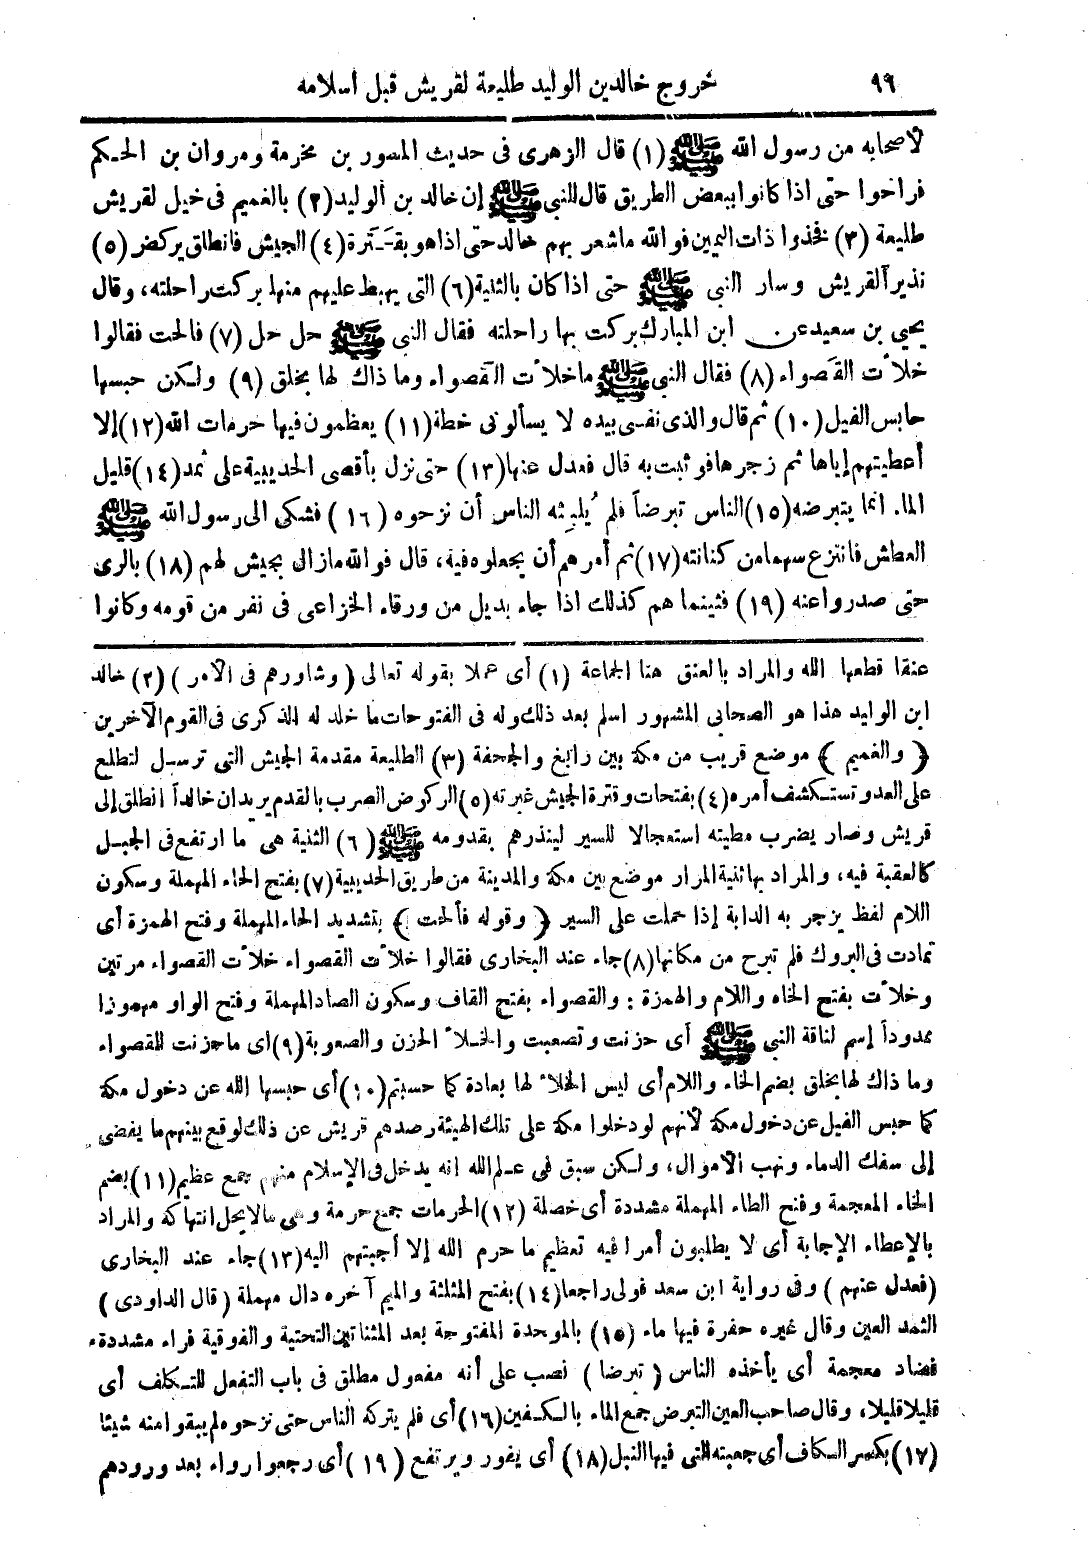 ٩٩ خروج خالد بن الوليد طليعة لقريش قبل اسلامه
لأصحابه من رسول الله ﷺ (١) قال الزهرى فى حديث المسور بن مخرمة ومروان بن الحكم
فراحوا حتى اذا كانوا ببعض الطريق قال للنبى ﷺ إن خالد بن الوليد (٢) بالغميم فى خيل لقريش
طليعة (٣) فخذوا ذات اليمين فوالله ماشعر بهم خالد حتى اذا هو بقَـتَرة (٤) الجيش فانطلق يركض (٥)
نذيرا لقريش وسار النبى ﷺ حتى اذا كان بالثنية (٦) التى يهبط عليهم منها بركت راحلته، وقال
يحيى بن سعيد عن ابن المبارك بركت بها راحلته فقال النبى ﷺ حل حل (٧) فألحت فقالوا
خلأت القَصواء (٨) فقال النبى ﷺ ماخلأت القصواء وما ذاك لها بخلق (٩) ولكن حبسها
حابس الفيل (١٠) ثم قال والذى نفسى بيده لا يسألونى خطة (١١) يعظمون فيها حرمات الله (١٢) إلا
أعطيتهم إياها ثم زجرها فوثبت به قال فعدل عنها (١٣) حتى نزل بأقصى الحديبية على ثمد (١٤) قليل
الماء انما يتبرضه (١٥) الناس تبرضاً فلم يُلبِثه الناس أن نزحوه (١٦) فشكى الى رسول الله ﷺ
العطش فانتزع سهما من كنانته (١٧) ثم أمرهم أن يجعلوه فيه، قال فوالله مازال يجيش لهم (١٨) بالرى
حتى صدروا عنه (١٩) فبينما هم كذلك اذا جاء بديل من ورقاء الخزاعى فى نفر من قومه وكانوا
عنقا قطعها الله والمراد بالعنق هنا الجماعة (١) أى عملا بقوله تعالى (وشاورهم فى الأمر) (٢) خالد
ابن الوليد هذا هو الصحابى المشهور اسلم بعد ذلك وله فى الفتوحات ما خلد له الذكرى فى القوم الآخرين
﴿والغميم﴾ موضع قريب من مكة بين رابغ والجحفة (٣) الطليعة مقدمة الجيش التى ترسل لتطلع
على العدو تستكشف أمره (٤) بفتحات وقترة الجيش غبرته (٥) الركوض الضرب بالقدم يريد ان خالداً انطلق إلى
قريش وصار يضرب مطيته استعجالا للسير لينذرهم بقدومه ﷺ (٦) الثنية هى ما ارتفع فى الجبل
كالعقبة فيه، والمراد بها ثنية المرار موضع بين مكة والمدينة من طريق الحديبية (٧) بفتح الحاء المهملة وسكون
اللام لفظ يزجر به الدابة إذا حملت على السير ﴿وقوله فألحت﴾ بتشديد الحاء المهملة وفتح الهمزة أى
تمادت فى البروك فلم تبرح من مكانها (٨) جاء عند البخارى فقالوا خلأت القصواء خلأت القصواء مرتين
وخلأت بفتح الخاء واللام والهمزة : والقصواء بفتح القاف وسكون الصاد المهملة وفتح الواو مهموزا
ممدوداً إسم لناقة النبى ﷺ أى حزنت وتصعبت والخلأ الحزن والصعوبة (٩) اى ما حزنت القصواء
وما ذاك لها بخلق بضم الخاء واللام أى ليس الخلاء لها بعادة كما حسبتم (١٠) أى حبسها الله عن دخول مكة
كما حبس الفيل عن دخول مكة لأنهم لو دخلوا مكة على تلك الهيئة وصدهم قريش عن ذلك لوقع بينهم ما يفضى
إلى سفك الدماء ونهب الأموال، ولكن سبق فى علم الله انه يدخل فى الإسلام منهم جمع عظيم (١١) بضم
الخاء المعجمة وفتح الطاء المهملة مشددة أى خصلة (١٢) الحرمات جمع حرمة وهى مالا يحل انتهاكه والمراد
بالإعطاء الإجابة أى لا يطلبون أمرا فيه تعظيم ما حرم الله إلا أجبتهم اليه (١٣) جاء عند البخارى
(فعدل عنهم) وفى رواية ابن سعد فولى راجعا (١٤) بفتح المثلثة والميم آخره دال مهملة (قال الداودى)
الثمد العين وقال غيره حفرة فيها ماء (١٥) بالموحدة المفتوحة بعد المثناتين التحتية والفوقية فراء مشددة
فضاد معجمة أى يأخذه الناس (تبرضا) نصب على أنه مفعول مطلق فى باب التفعل للتكلف أى
قليلا قليلا، وقال صاحب العين التبرض جمع الماء بالكفين (١٦) أى فلم يتركه الناس حتى نزحوه لم يبقوا منه شيئا
(١٧) بكسر الكاف أى جعبته التى فيها النبل (١٨) أى يفور ويرتفع (١٩) أى رجعوا رواء بعد ورودهم